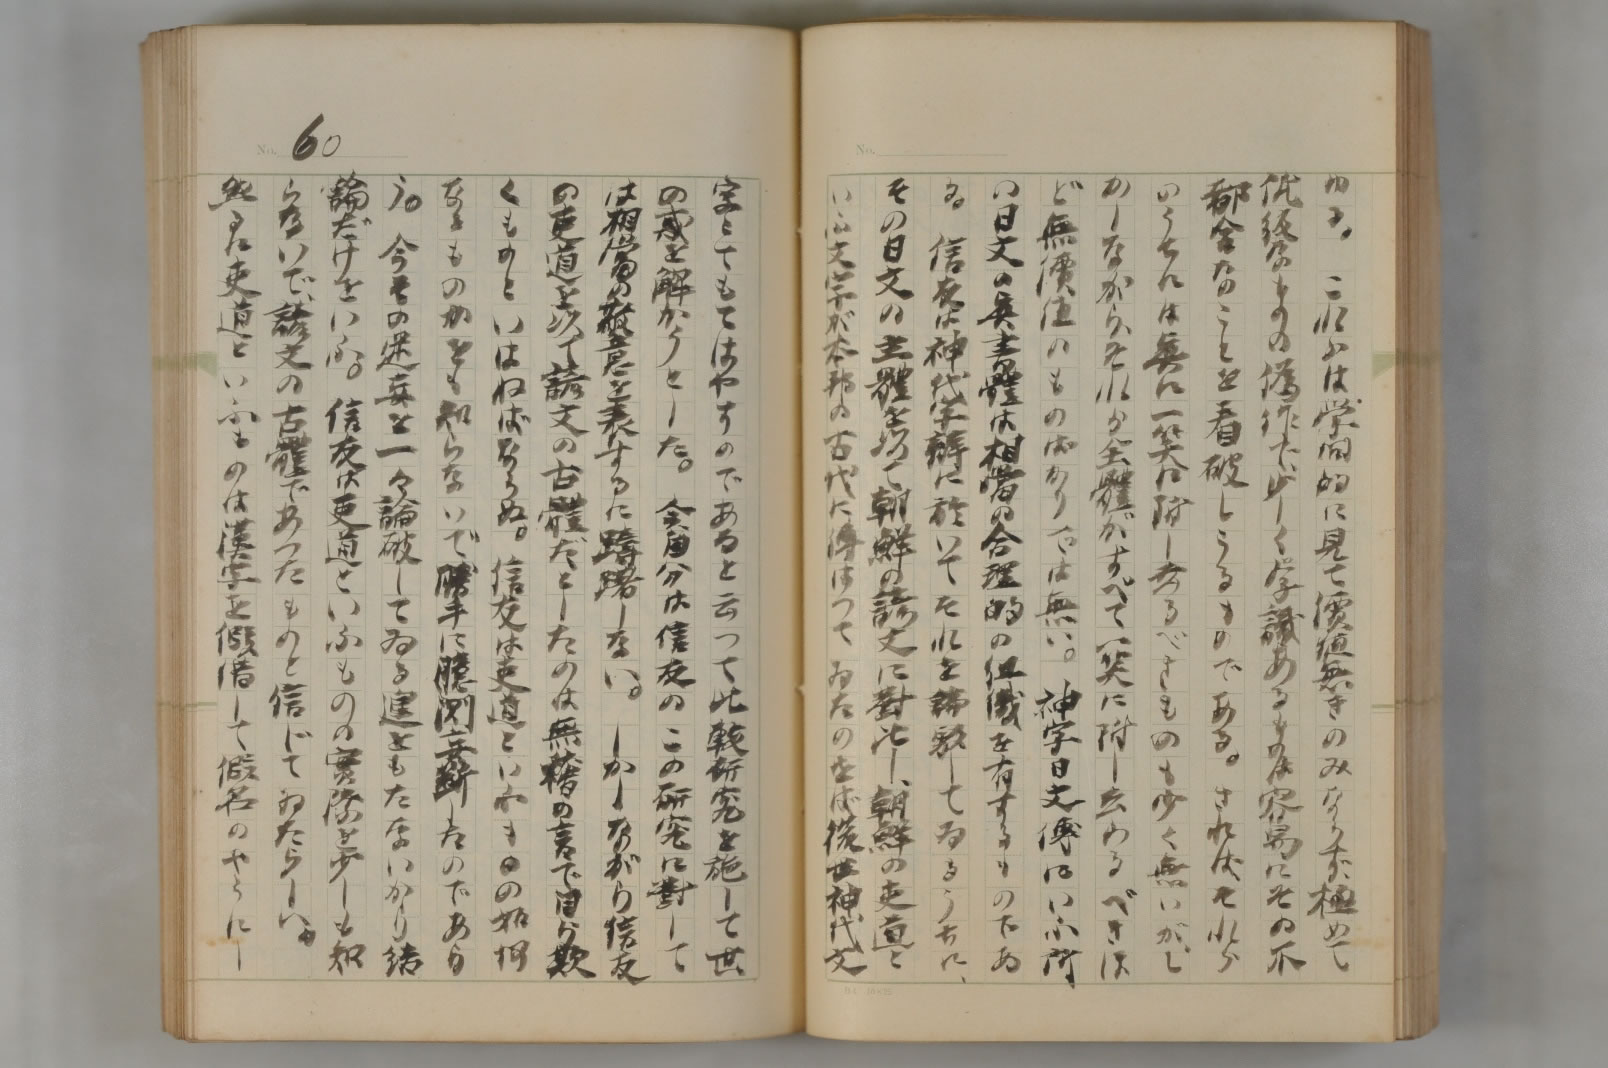 ゐる。これらは学問的に見て價値無きのみならず極めて
低級なものの偽作で少しく学識あるものは容易にその不
都合なことを看破しうるものである。さればそれら
のうちには無に一笑に附し去るべきものも少く無いが、し
かしながら、それら全體がすべて一笑に附し去らるべきほ
ど無價値のものばかりでは無い。神字日文傳にいふ所
い日文の眞書體は相當の合理的の組織を有するものであ
る。信友は神代字辨に於いてそれを論駁してゐるうちに、
その日文の主體を以て朝鮮の諺文に對比し、朝鮮の吏道と
いふ文字が本邦の古代に傳はつてゐたのをば後世神代文
No. 60
字としてもてはやすのであると云つて比較研究を施して世
の惑を解かうとした。余自分は信友のこの研究に對して
は相當の敬意を表するに躊躇しない。しかしながら信友
の吏道を以て諺文の古體だとしたのは無稽の言で自ら欺
くものといはねばならぬ。信友は吏道といふものの如何
なるものかをも知らないで勝手に臆測妄斷したのであら
う。今その迷妄を一々論破してゐる遑をもたないから結
論だけをいふ。信友は吏道といふものの實際を少しも知
らないで、諺文の古體であつたものと信じてゐたらしい。
然るに吏道といふものは漢字を假借して假名のやうにし
No.